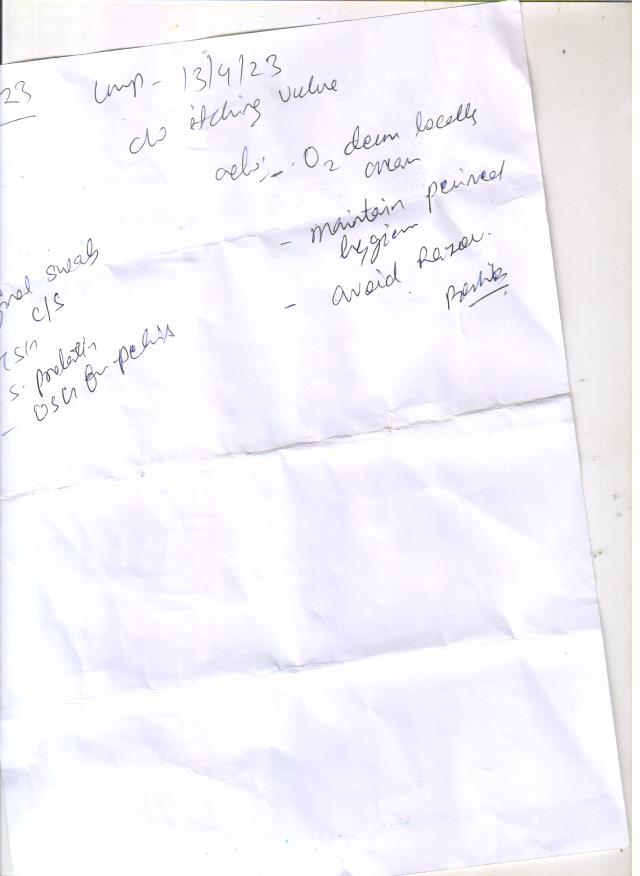 23
Lmp- 13/4/23
c/o itching vulva
adv:-. O2 derm locally
- maintain perineal
hygiene
- avoid Razor.
swab
c/s
TSH
s. prolactin
- USG for pelvis